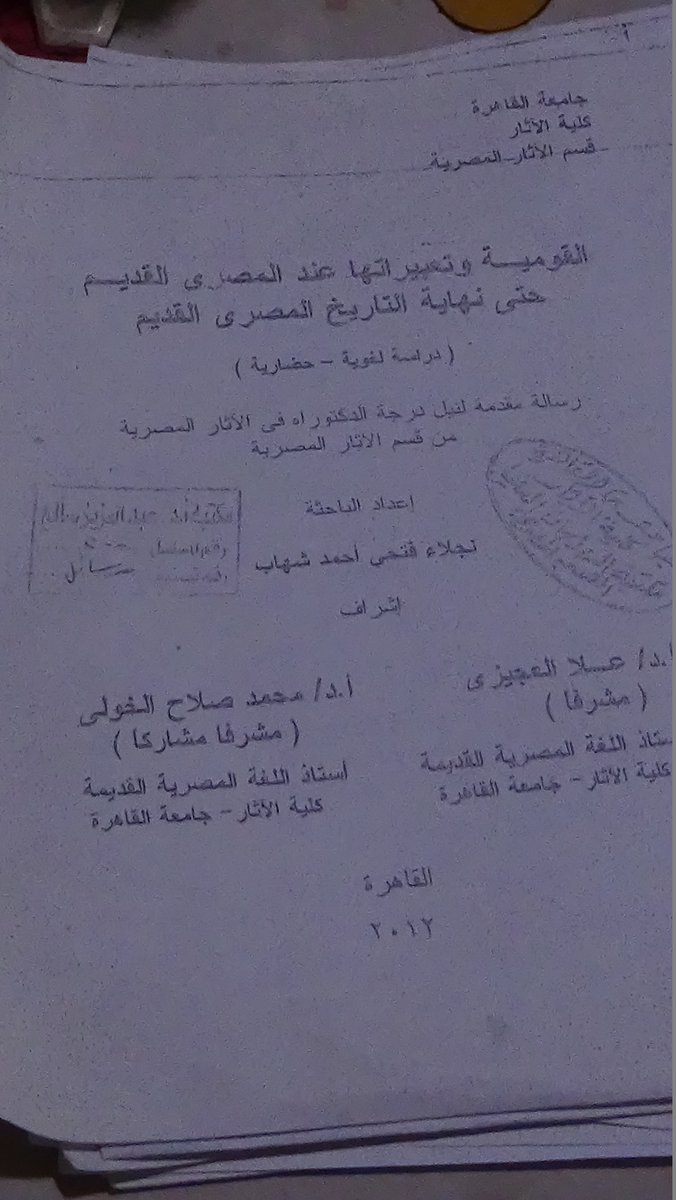 أ
جامعة القاهرة
كلية الآثار
قسم الآثار المصرية
القوميـة وتعبيراتها عند المصرى القديـم
حتى نهاية التاريخ المصرى القديم
( دراسة لغوية - حضارية )
رسالة مقدمة لنيل درجة الدكتوراه فى الآثار المصرية
من قسم الآثار المصرية
مكتبة أ.د عبدالعزيز صالح
رقم المسلسل
رسائل
إعداد الباحثة
نجلاء فتحى أحمد شهاب
إشراف
أ.د/ عـلا العجيزى
( مشرفا )
ستاذ اللغة المصرية القديمة
كلية الآثار - جامعة القاهرة
أ.د/ محمد صلاح الخولى
( مشرفا مشاركا )
أستاذ اللغة المصرية القديمة
كلية الآثار - جامعة القاهرة
القاهرة
٢٠١٢